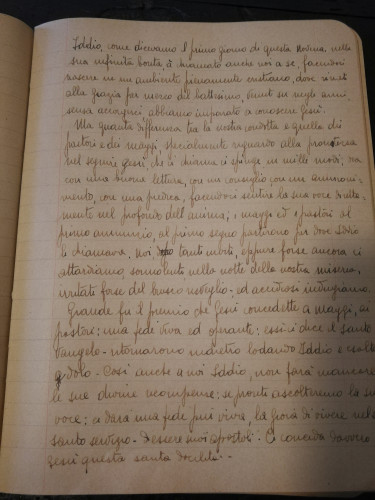 Iddio, come dicevamo il primo giorno di questa novena, nella
sua infinita bontà à chiamato anche noi a sè, facendoci
nascere in un ambiente pienamente cristiano, dove rinati
alla grazia per mezzo del battesimo, venuti su negli anni
senza accorgerci abbiamo imparato a conoscere Gesù.
Ma quanta differenza tra la nostra condotta e quella dei
pastori e dei maggi specialmente riguardo alla prontezza
nel seguire Gesù, che ci chiama ci spinge in mille modi; ora
con una buona lettura, con un consiglio, con un ammoni-
mento, con una predica, facendoci sentire la sua voce diretta-
mente nel profondo dell'anima; i maggi ed i pastori al
primo annunzio, al primo segno partirono per dove Iddio
li chiamava, noi tanti inviti, eppure forse ancora ci
attardiamo, sonnolenti nella notte della nostra miseria,
irritati forse del brusco risveglio ed accidiosi indugiamo.
Grande fu il premio che Gesù concedette ai maggi, ai
pastori: una fede viva ed operante: essi ci dice il santo
Vangelo - ritornarono indietro lodando Iddio e
Così anche a noi Iddio, non farà mancare
le sue divine ricompense: se pronti ascolteremo la sua
voce: ci darà una fede più viva, la gioia di vivere nel
santo servizio - d'essere suoi apostoli. Ci conceda davvero
Gesù questa santa docilità -.